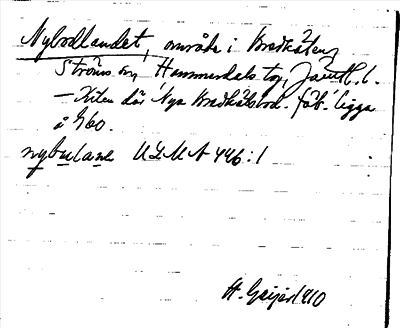 Nybodlandet, område i Bredkälen,
Ströms sn, Hammerdals tg, Jämtl. l.
— Xiten där Nya Bredkälsbod. fäb. ligga
å G60.
nybulane ULMA 446:1
H. Geijer 1910